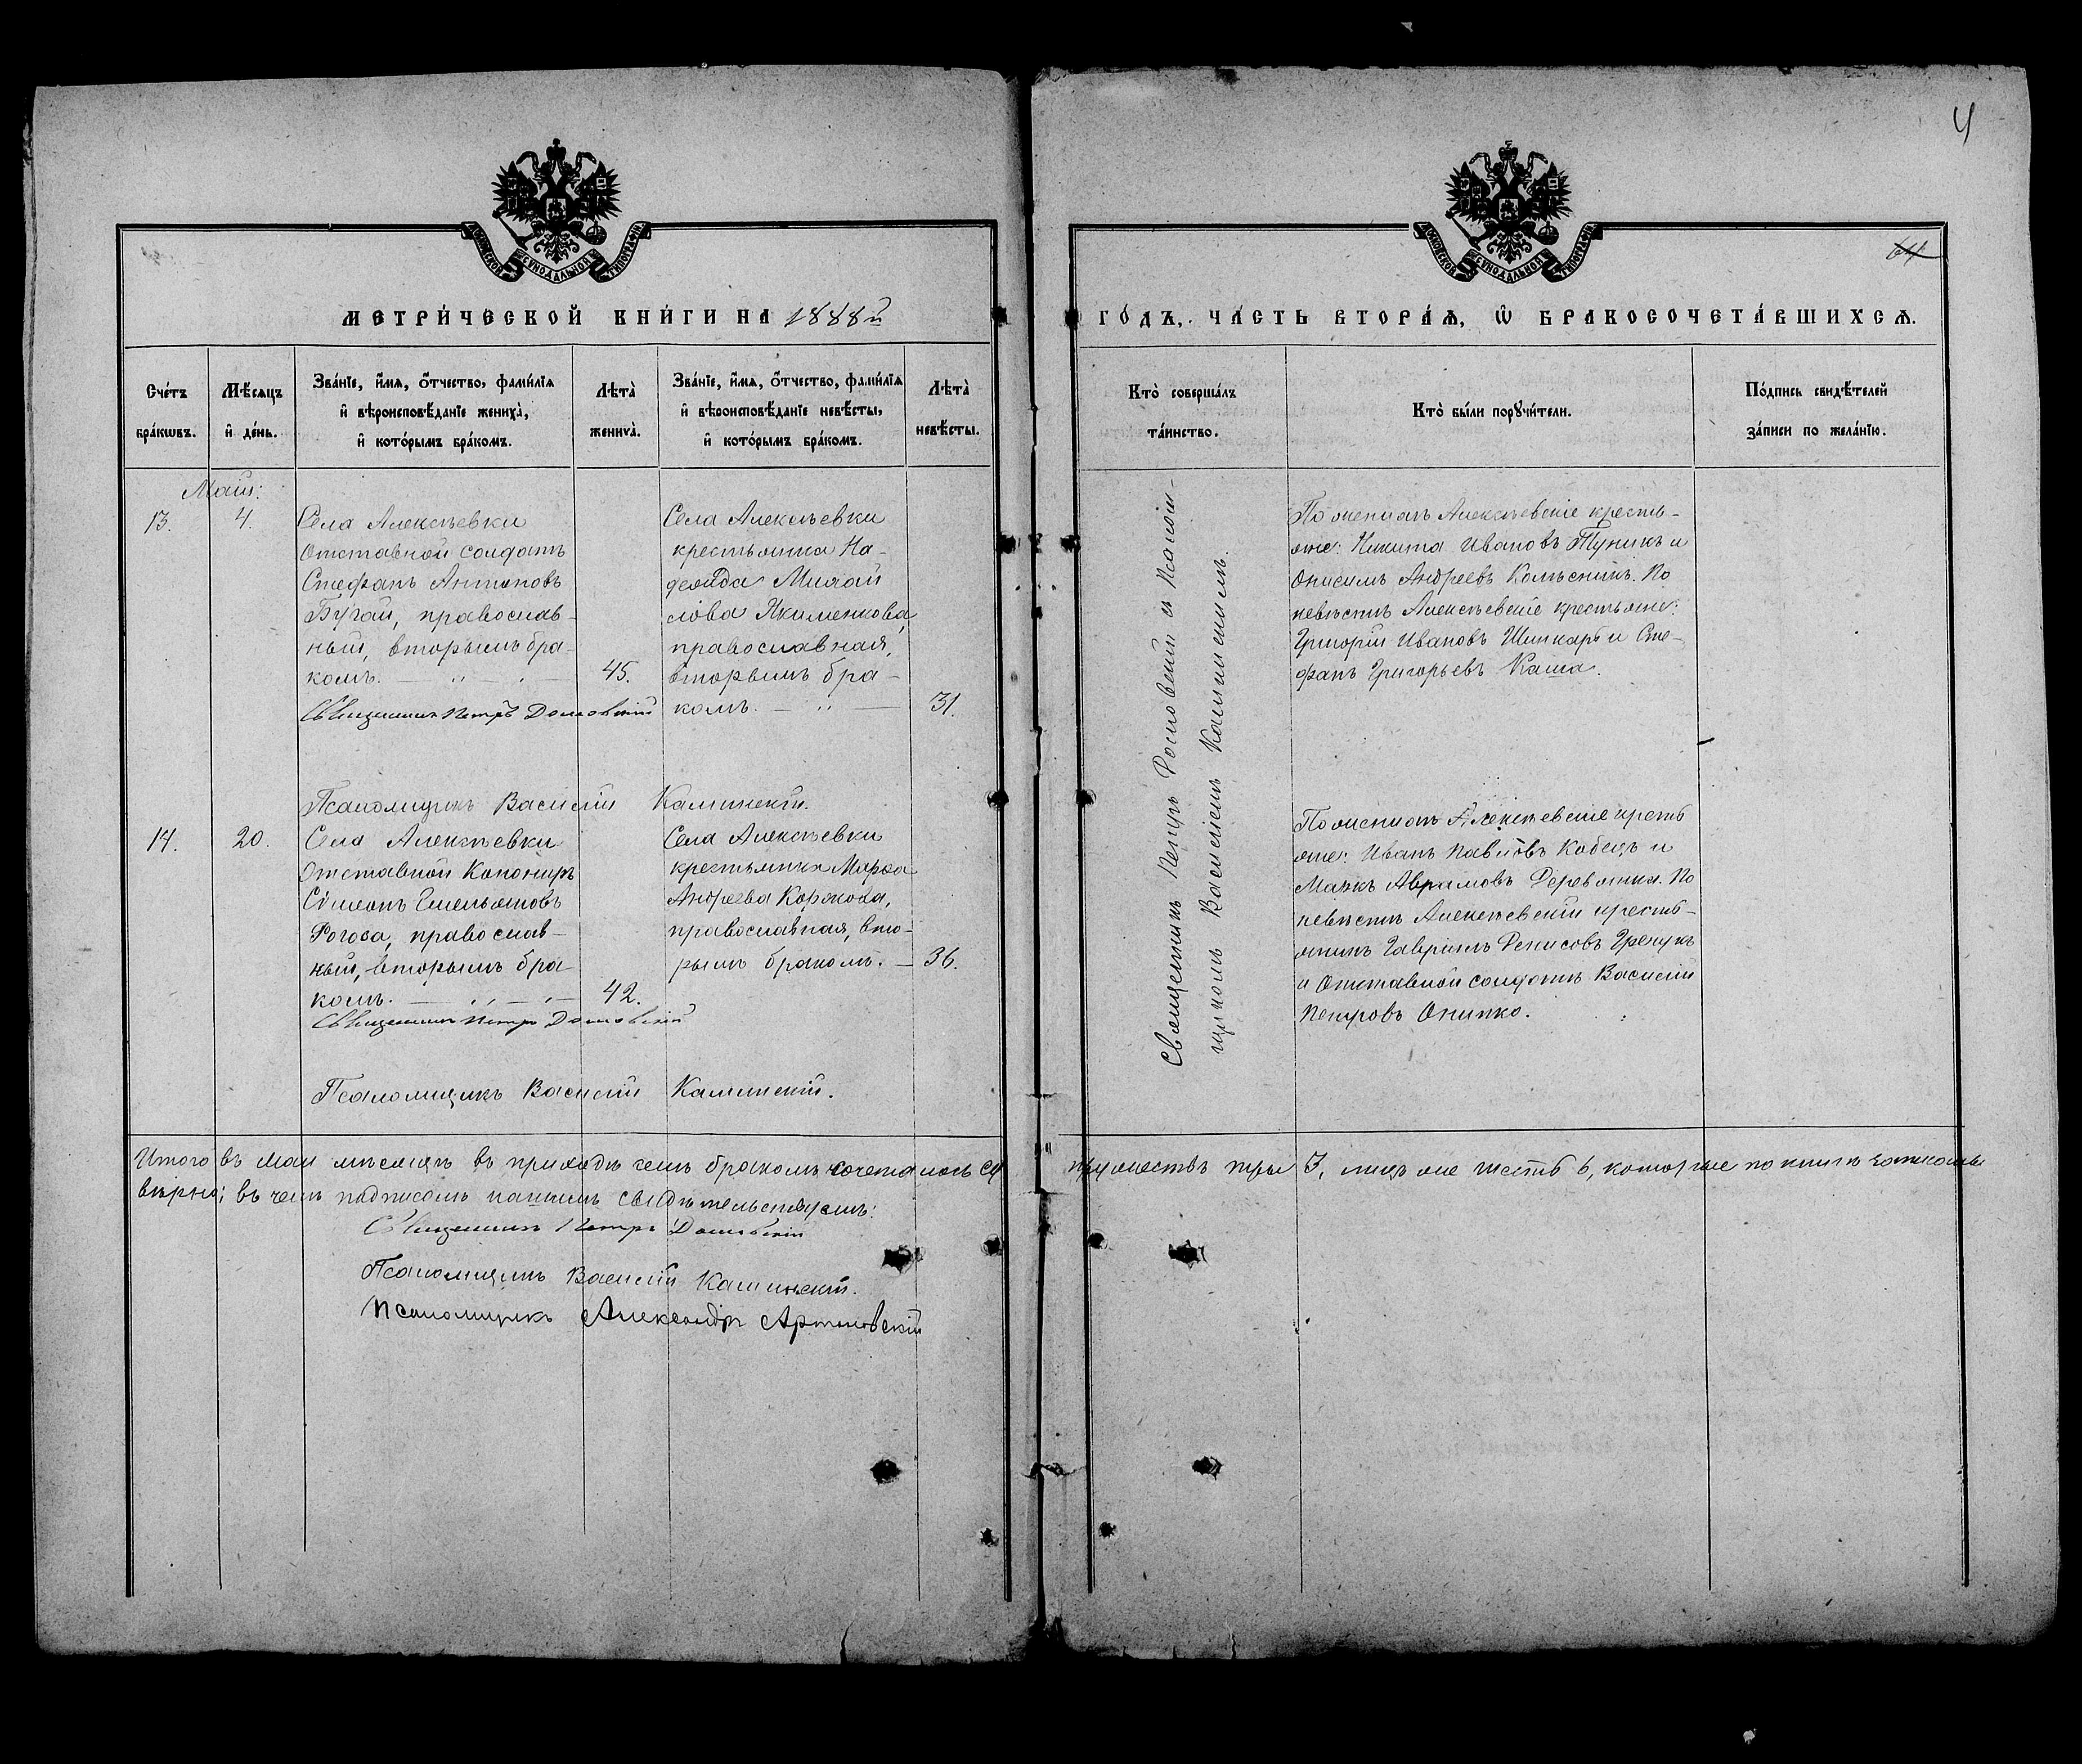 4
64
МОСКОВСКОЙ СѴНОДАЛЬНОЙ ТИПОГРАФІИ
МОСКОВСКОЙ СѴНОДАЛЬНОЙ ТИПОГРАФІИ
МЕТРИ́ЧЕСКОЙ КНИ́ГИ НА 1888й
ГО́ДЪ, ЧА́СТЬ ВТОРА́Ѧ, Ѡ БРАКОСОЧЕТА́ВШИХСѦ.
Сче́тъ бра́кѡвъ.
Мѣ́сѧцъ и҆ де́нь.
Зва́нїе, и҆́мѧ, ѻ҆́тчество, фами́лїѧ
и҆ вѣроисповѣ́данїе жениха̀,
и҆ кото́рымъ бра́комъ.
Лѣта̀ жениха̀.
Зва́нїе, и҆́мѧ, ѻ҆́тчество, фами́лїѧ
и҆ вѣроисповѣ́данїе невѣ́сты,
и҆ кото́рымъ бра́комъ.
Лѣта̀ невѣ́сты.
Кто̀ соверша́лъ
та́инство.
Кто̀ бы́ли порꙋчи́тели.
По́дпись свидѣ́телей
за́писи по жела́нїю.
Май:
13.
4.
Села Алексѣевки
Отставной солдатъ
Стефанъ Антоновъ
Бугай, православ-
ный, вторымъ бра-
комъ.
45.
Священникъ Петръ
Псаломщикъ Василій Каминскій.
Села Алексѣевки
крестьянка На-
дежда Михай
лова Якименкова,
православная,
вторымъ бра-
комъ.
31.
Священникъ Петръ
щикомъ Василіемъ
По женихѣ Алексѣевскіе кресть-
яне: Никита Ивановъ Туникъ и
Онисимъ Андреевъ Колѣсникъ. По
невѣстѣ Алексѣевскіе крестьяне:
Григорій Ивановъ Шинкарь и Сте-
фанъ Григорьевъ Каша.
14.
20.
Села Алексѣевки
Отставной Канониръ
Сѵмеонъ Емельяновъ
Рогоза, православ-
ный, вторымъ бра-
комъ.
42.
Священникъ Петръ
Псаломщикъ Василій Каминскій.
Села Алексѣевки
крестьянка Марѳа
Андреева Коржова,
православная, вто-
рымъ бракомъ.
36.
По женихѣ Алексѣевскіе кресть
яне: Иванъ Павловъ Кобецъ и
Маркъ Аврамовъ Деревянка. По
невѣстѣ Алексѣевскій кресть-
янинъ Гавріилъ Денисовъ
и Отставной солдатъ Василій
Петровъ Онипко.
Итого въ маѣ мѣсяцѣ въ приходѣ семъ бракомъ сочеталось су
пружествъ три 3, лицъ же шесть 6, которые по книгѣ записаны
вѣрно; въ чемъ подписомъ нашимъ свидѣтельствуемъ:
Священникъ Петръ
Псаломщикъ Василій Каминскій.
Псаломщикъ Александръ Артановскій